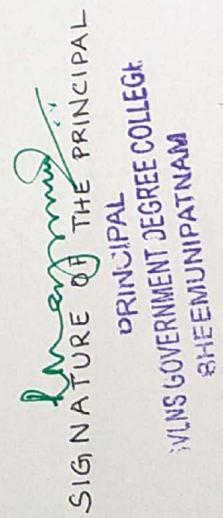 SIGNATURE OF THE PRINCIPAL
PRINCIPAL
VLNS GOVERNMENT DEGREE COLLEGE
BHEEMUNIPATNAM